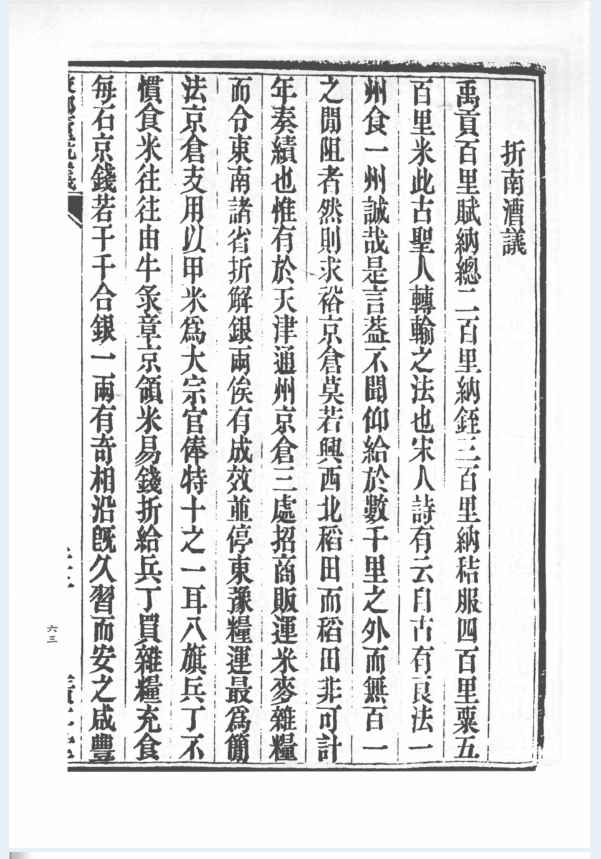 折南漕議
禹貢百里賦納緫二百里納銍三百里納秸服四百里粟五
百里米此古聖人轉輸之法也宋人詩有云自古有良法一
州食一州誠哉是言葢不聞仰給於數千里之外而無百一
之閒阻者然則求裕京倉莫若興西北稻田而稻田非可計
年奏績也惟有於天津通州京倉三處招商販運米麥雜糧
而令東南諸省折解銀兩俟有成效並停東豫糧運最爲簡
法京倉支用以甲米爲大宗官俸特十之一耳八旗兵丁不
慣食米往往由牛彔章京領米易錢折給兵丁買雜糧充食
每石京錢若干千合銀一兩有奇相沿旣久習而安之咸豐
六三